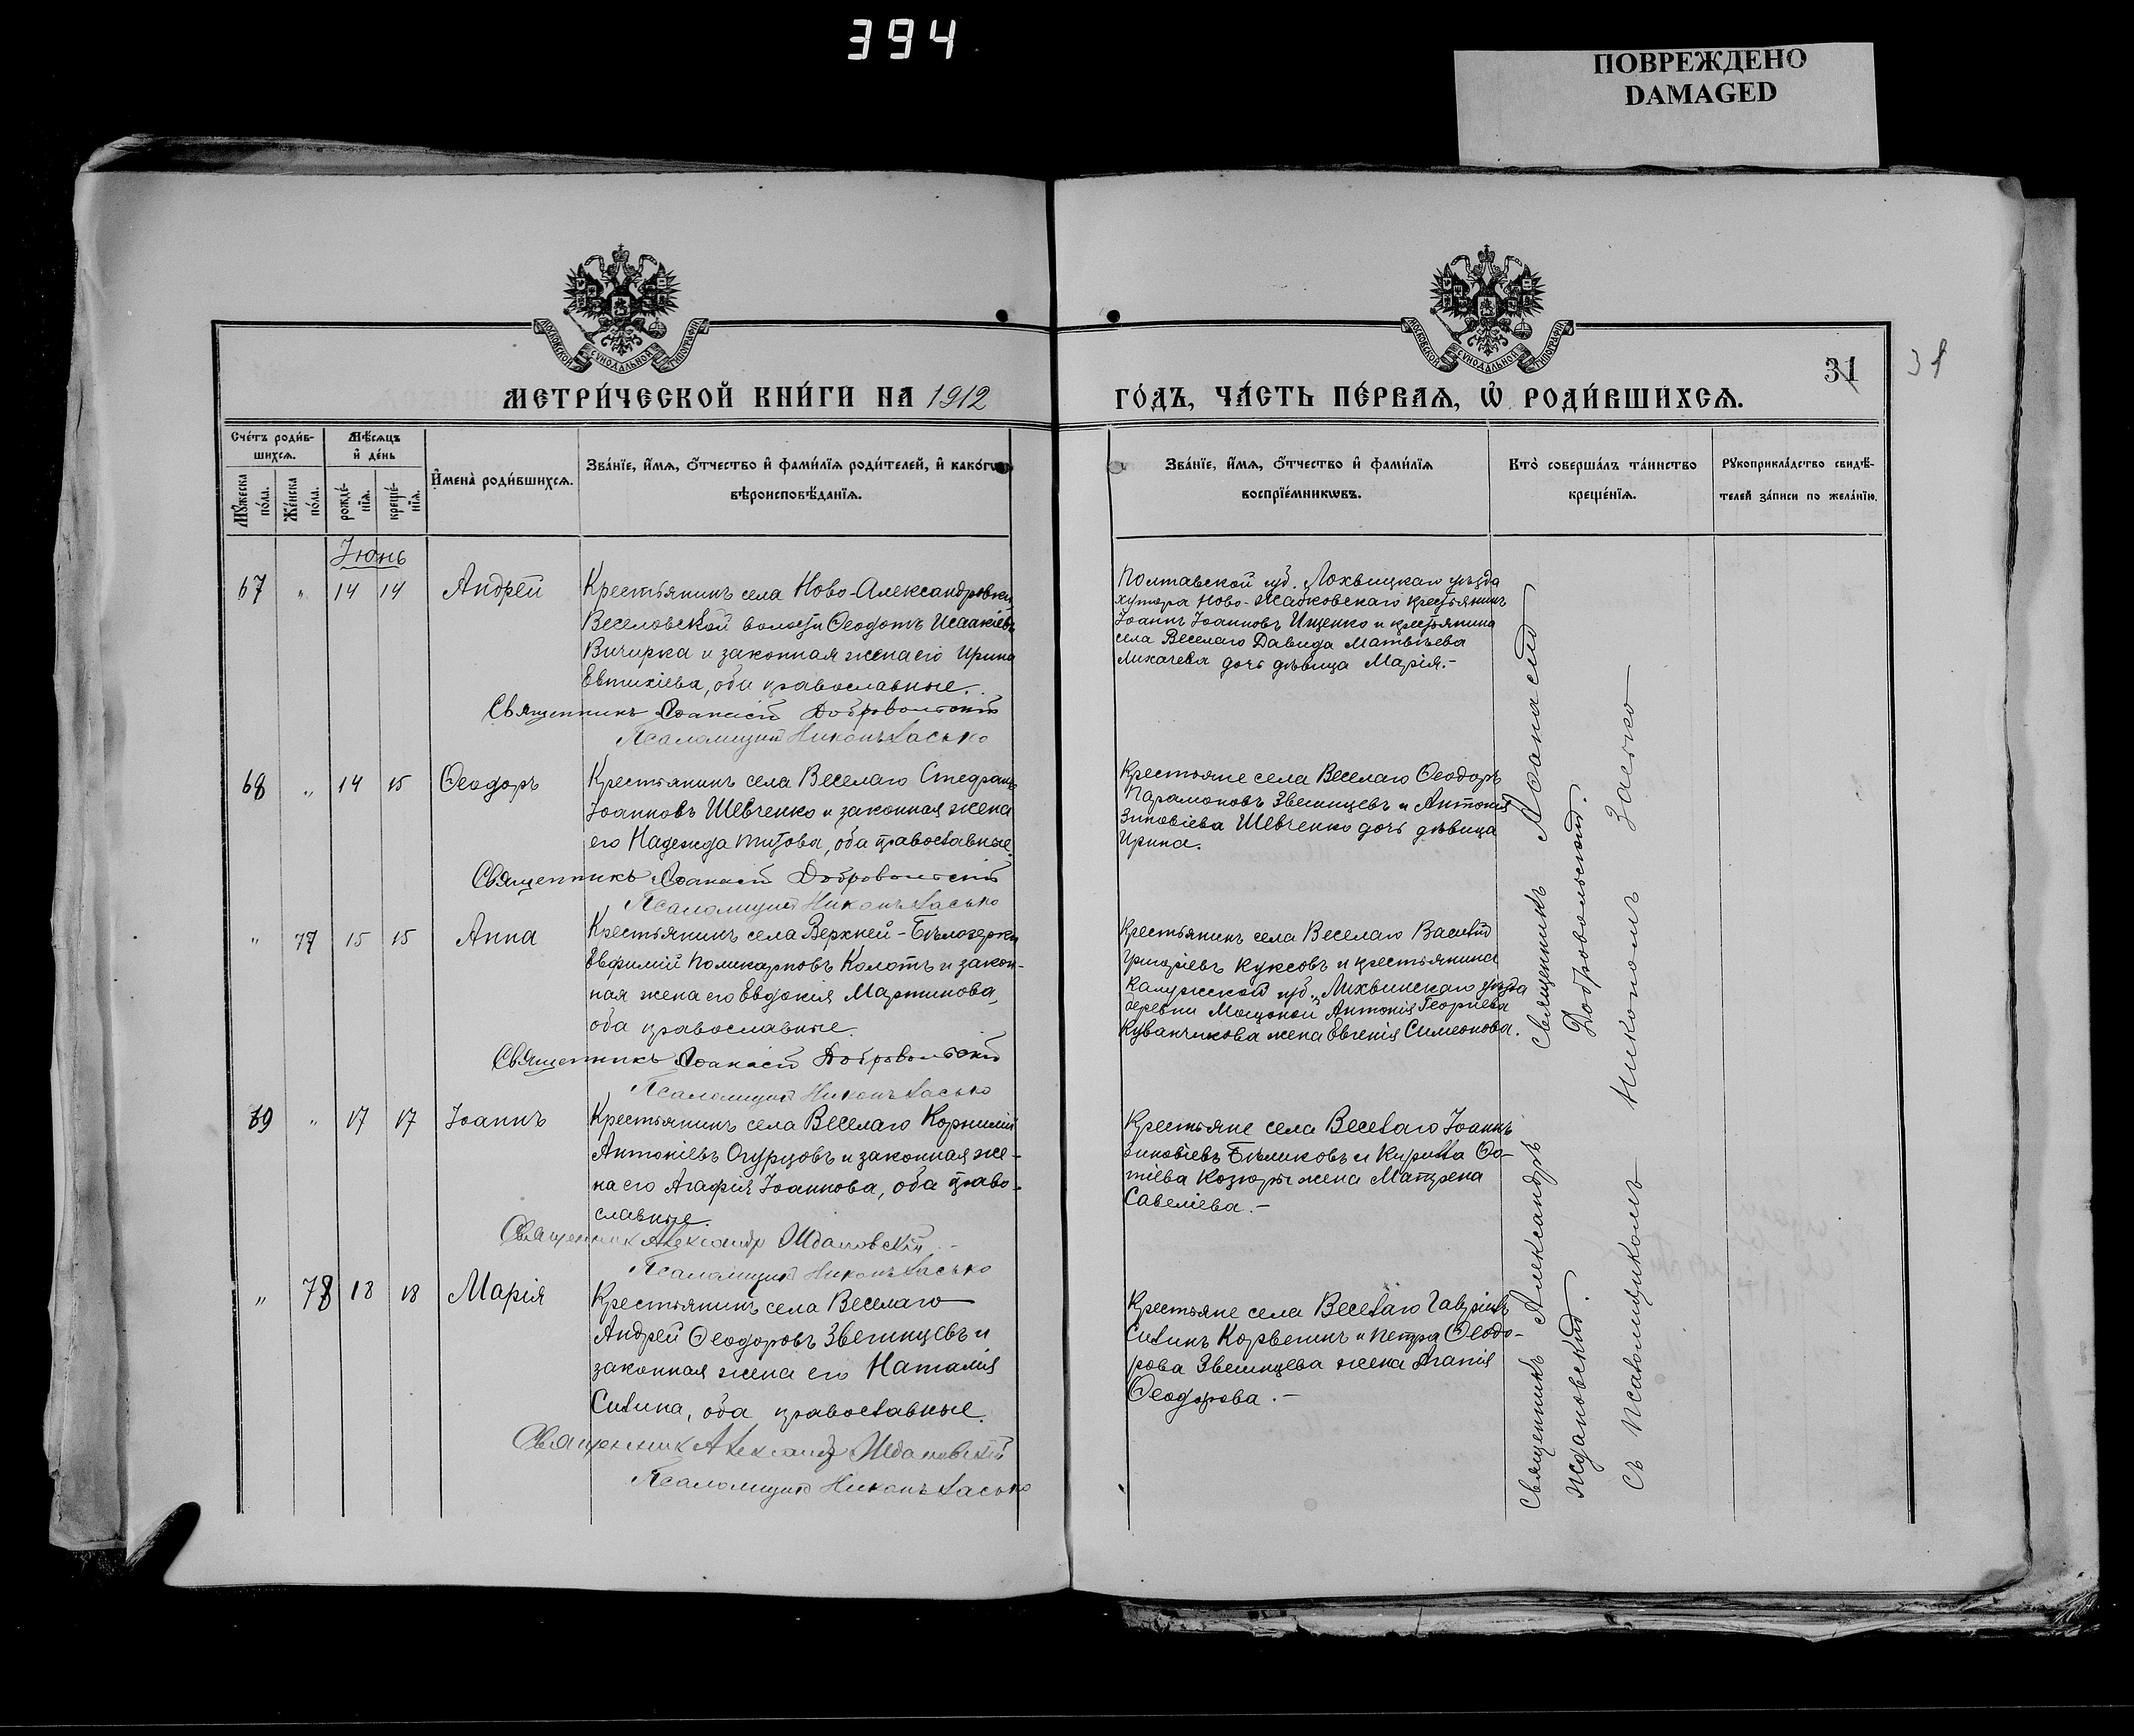 394
ПОВРЕЖДЕНО
DAMAGED
МОСКОВСКОЙ СѴНОДАЛЬНОЙ ТИПОГРАФІИ
МОСКОВСКОЙ СѴНОДАЛЬНОЙ ТИПОГРАФІИ
31
31
МЕТРИ́ЧЕСКОЙ КНИ́ГИ НА 1912
ГО́ДЪ, ЧА́СТЬ ПЕ́РВАѦ, Ѡ РОДИ́ВШИХСѦ.
Сче́тъ роди́в-
шихсѧ.
Мꙋжеска по́ла.
Же́нска по́ла.
Мѣ́сѧцъ
и҆ де́нь
рожде́-
нїѧ.
креще́-
нїѧ.
И҆мена̀ роди́вшихсѧ.
Зва́нїе, и҆́мѧ, ѻ҆́тчество и҆ фами́лїѧ роди́телей, и҆ како́гѡ
вѣроисповѣ́данїѧ.
Зва́нїе, и҆́мѧ, ѻ҆́тчество и҆ фами́лїѧ
воспрїе́мникѡвъ.
Кто̀ соверша́лъ та́инство
креще́нїѧ.
Рꙋкоприкла́дство свидѣ́-
телей за́писи по жела́нїю.
Іюнь
67 " 14 14 Андрей
Крестьянинъ села Ново-Александровки,
Веселовской волости Ѳеодотъ Исаакіевъ
Вичирка и законная жена его Ирина
Евтихіева, оби православные.
Священникъ Аѳанасій Добровольскій
Псаломщикъ Никонъ Засько
Полтавской губ. Лохвицкаго уѣзда
хутора Ново-Жабковскаго крестьянинъ
Іоаннъ Іоанновъ Ищенко и крестьянина
села Веселаго Давида Матвѣева
Лихачева дочь дѣвица Марія.-
68 " 14 15 Ѳеодоръ
Крестьянинъ села Веселаго Стефанъ
Іоанновъ Шевченко и законная жена
его Надежда Титова, оба православные.
Священникъ Аѳанасій Добровольскій
Псаломщикъ Никонъ Засько
Крестьяне села Веселаго Ѳеодоръ
Парамоновъ Звегинцевъ и Антонія
Зиновіева Шевченко дочь дѣвица
Ирина.
" 77 15 15 Анна
Крестьянинъ села Верхней-Бѣлозерки
Евфимій Поликарповъ Колотъ и закон-
ная жена его Евдокія Мартинова,
оба православные.
Священникъ Аѳанасій Добровольскій
Псаломщикъ Никонъ Засько
Крестьянинъ села Веселаго Василій
Григоріевъ Куксовъ и крестьянина
Калужской губ., Лихвинскаго уѣзда
деревни Мощоной Антонія Георгіева
Куванчикова жена Евгенія Симеонова.
69 " 17 17 Іоаннъ
Крестьянинъ села Веселаго Корнилій
Антоніевъ Огурцовъ и законная же-
на его Агафія Іоаннова, оба право-
славные.
Священник Александр Ждановскій
Псаломщикъ Никонъ Засько
Крестьяне села Веселаго Іоаннъ
Зиновіевъ Бѣликовъ и Кирилла Фо-
тіева Козюры жена Матрена
Савеліева.-
" 78 18 18 Марія
Крестьянинъ села Веселаго
Андрей Ѳеодоровъ Звегинцевъ и
законная жена его Наталія
Силина, оба православные.
Священник Александр Ждановскій
Псаломщикъ Никонъ Засько
Крестьяне села Веселаго Гавріилъ
Силинъ Корвегинъ и Петра Ѳеодо-
рова Звегинцева жена Агапія
Ѳеодорова.-
Священникъ Аѳанасій
Добровольскій.
Священникъ Александръ
Ждановскій.
съ псаломщикомъ Никономъ Засько